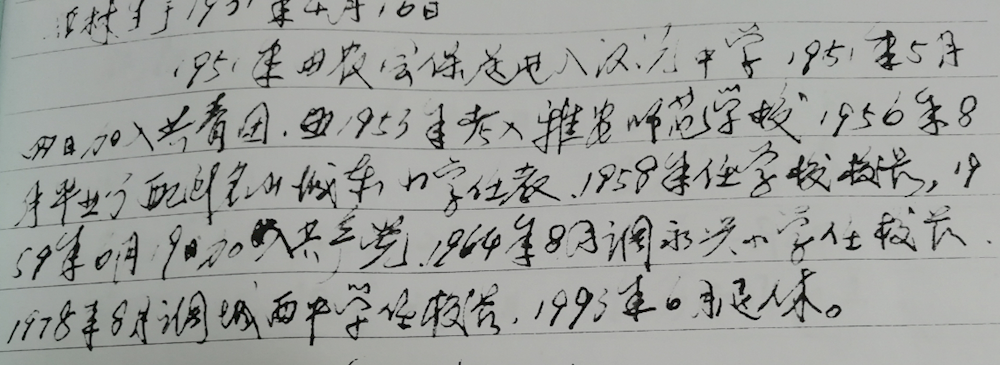 村生于1931年4月16日
1951年由农会保送进入汉元中学1951年5月
四日加入共青团.由1953年考入雅安师范学校1956年8
月毕业分配到名山城东小学任教、1958年任学校校长,19
59年月19日加入共产党.1964年8月调永兴小学任校长.
1978年8月调城西中学任校长.1993年6月退休。